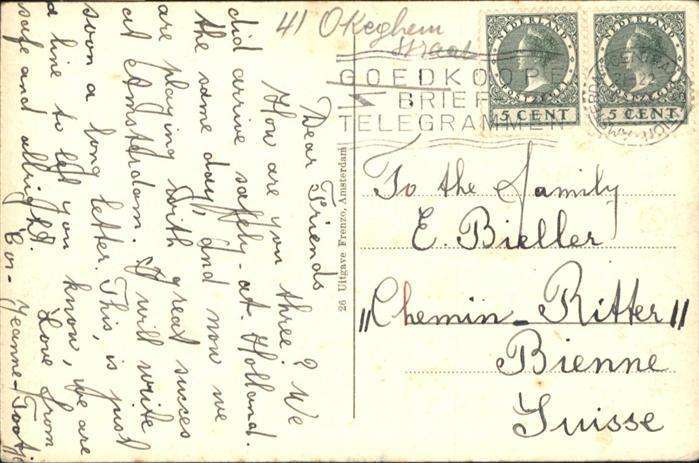 41 Okeghem
straat
NEDERLAND
NEDERLAND
5 CENT
5 CENT
GOEDKOOPE
BRIEF
TELEGRAMMEN
Dear Friends
How are you three? We
did arrive safely at Holland.
the same day, and now we
are playing with great succes
at Amsterdam. I will write
soon a long letter. This, is just
a line to let you know, we are
safe and allright. Love from
Cor - Jeanne - Tootje
26 Uitgave Frenzo, Amsterdam
To the family
E. Bieller
"Chemin - Ritter"
Bienne
Suisse